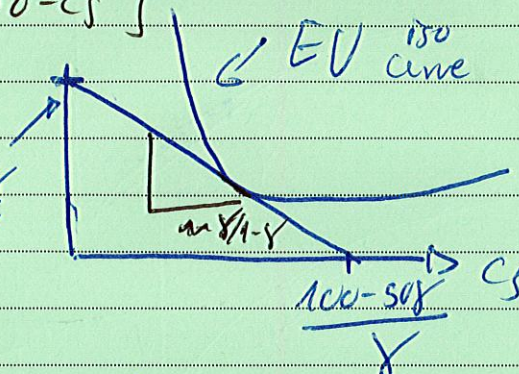 EU iso
curve
γ/1-γ
Cg
100-50γ
γ